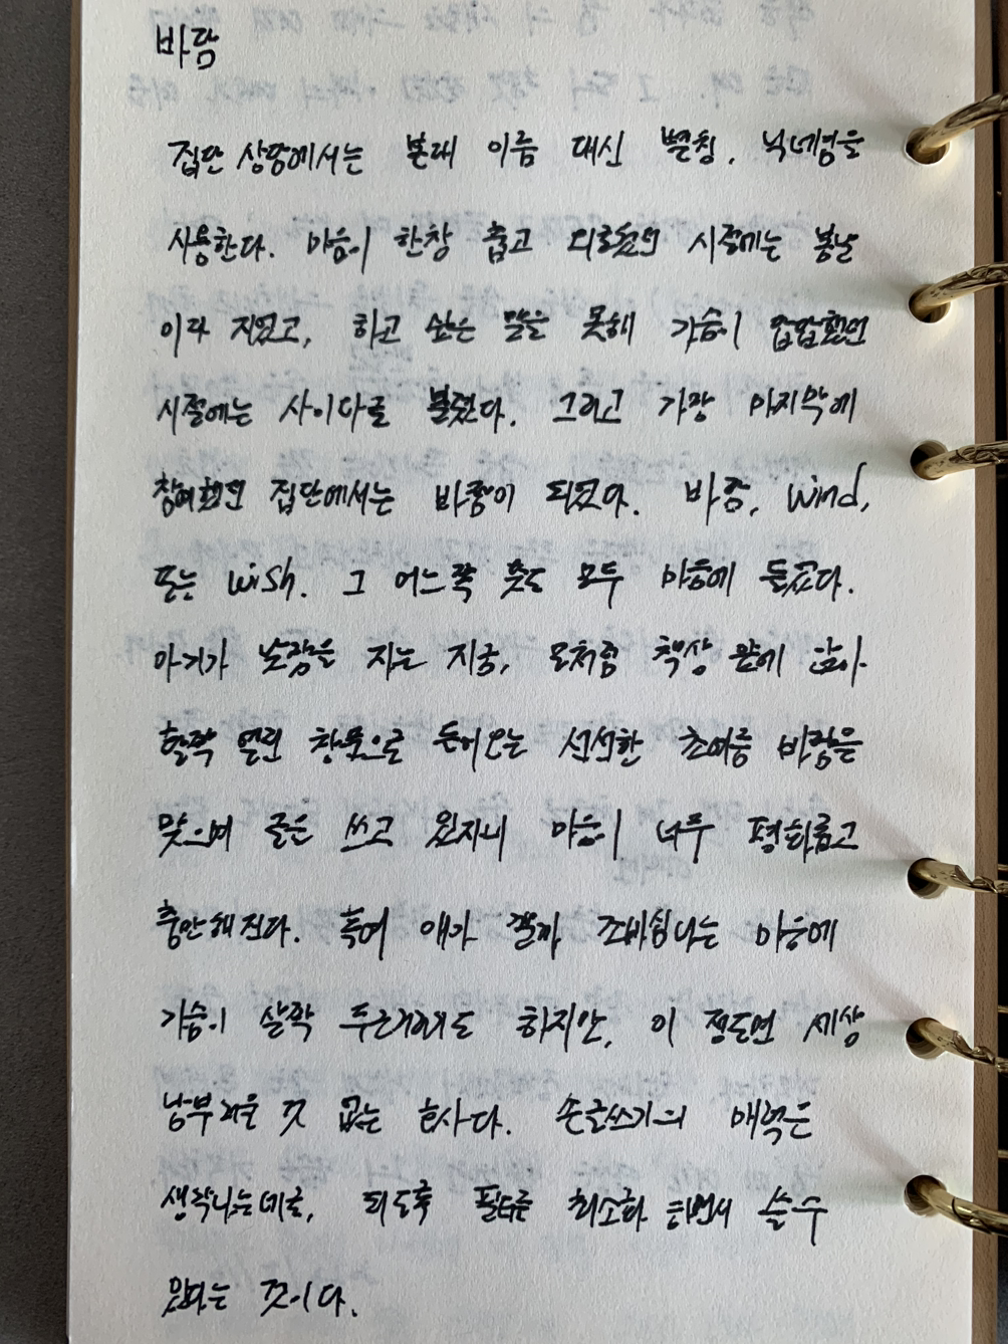 바람
집단 상담에서는 본래 이름 대신 별칭, 닉네임을
사용한다. 마음이 한창 춥고 외로웠던 시절에는 봄날
이라 지었고, 하고 싶은 말을 못해 가슴이 답답했던
시절에는 사이다로 불렸다. 그리고 가장 마지막에
참여했던 집단에서는 바람이 되었다. 바람, wind,
또는 wish. 그 어느쪽 뜻도 모두 마음에 들었다.
아기가 낮잠을 자는 지금, 모처럼 책상 앞에 앉아
활짝 열린 창문으로 들어오는 선선한 초여름 바람을
맞으며 글을 쓰고 있자니 마음이 너무 평화롭고
충만해진다. 혹여 애가 깰까 조바심나는 마음에
가슴이 살짝 두근거려도 하지만, 이 정도면 세상
남부러울 것 없는 호사다. 손글쓰기의 매력은
생각나는대로, 되도록 필터를 최소화 하면서 쓸 수
있다는 것이다.